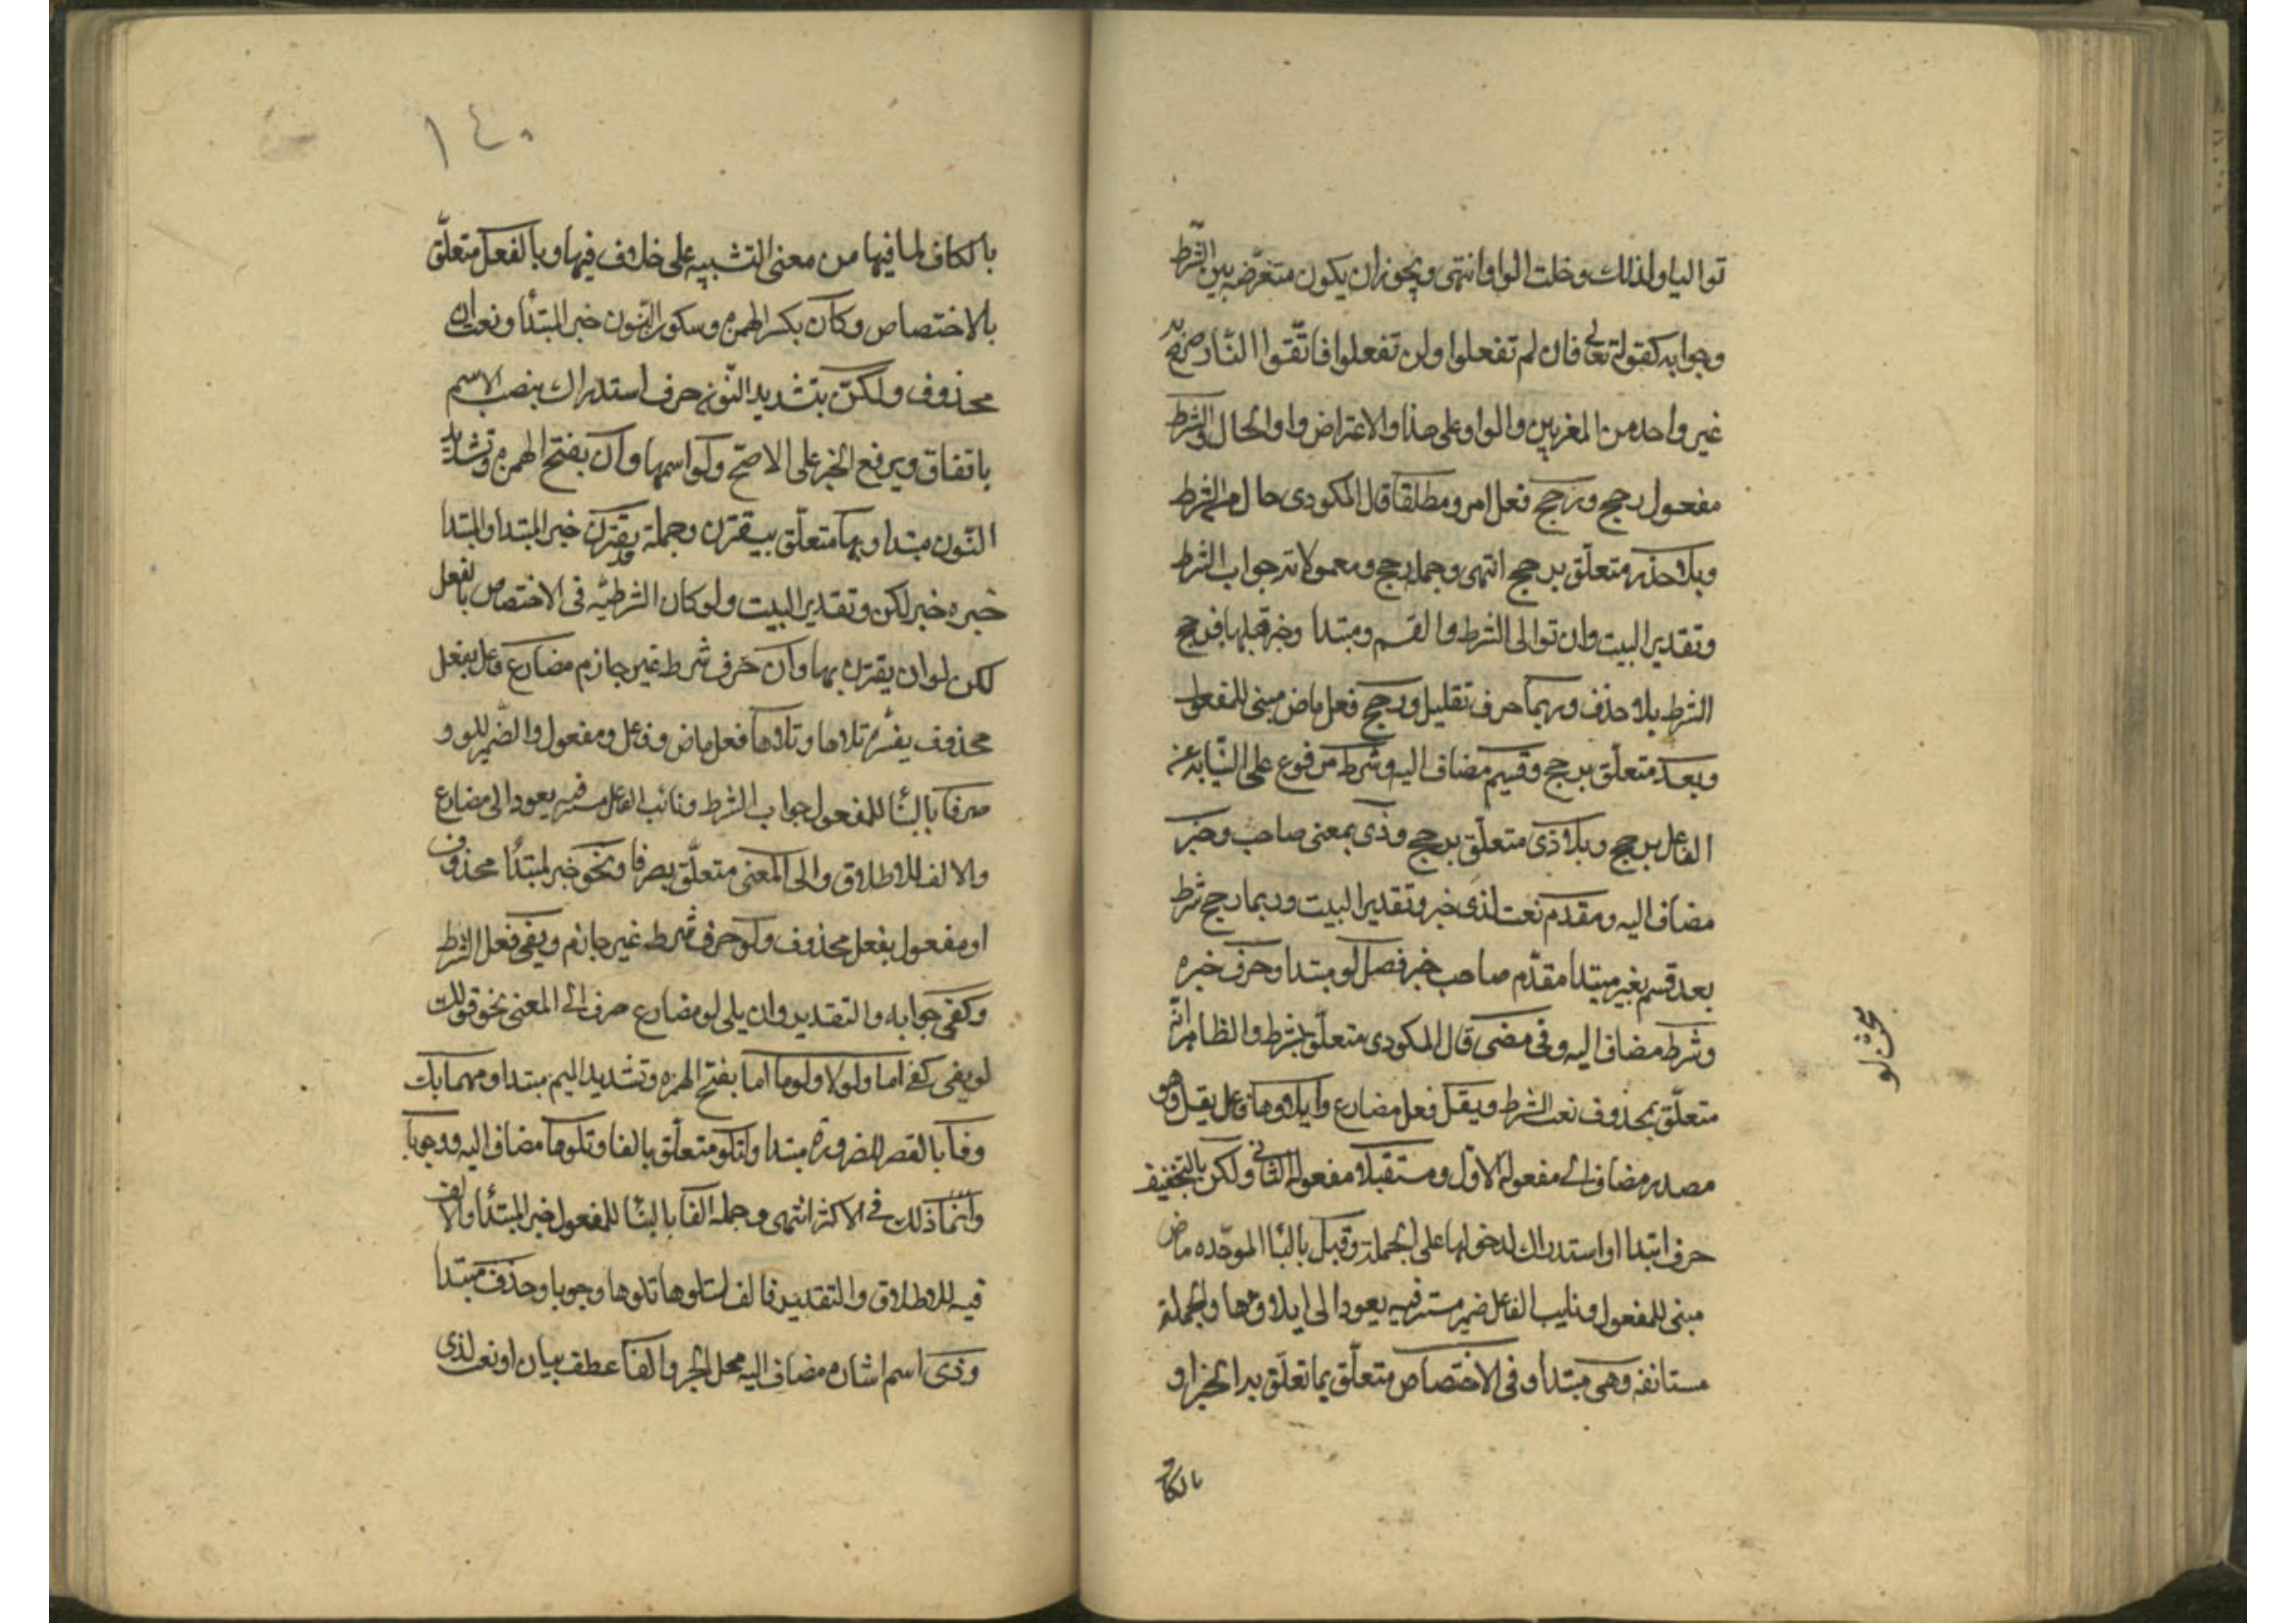 تواليا ولذلك دخلت الواو انتهى ويجوز ان يكون متعرضه بين الشرط
وجوابه كقوله تعالى فان لم تفعلوا ولن تفعلوا فاتّقوا النّار
غير واحد من المعربين والواو على هذا واو الاعتراض واو الحال والشرط
مفعول رجح ورجح فعل امر ومطلقا قال المكودى حال من الشرط
وبلا حذر متعلّق برجح انتهى وجملة رجح ومعمولاته جواب الشرط
وتقدير البيت وان توالى الشرط والقسم ومبتدا وخبر قبلها فرجح
الشرط بلا حذف وربما حرف تقليل ورجح فعل ماض مبنى للمفعول
وبعد متعلّق برجح وقسيم مضاف اليه وشرط مرفوع على النّيابه عن
الفاعل برجح وبلا ذى متعلّق برجح وذى بمعنى صاحب وخبر
مضاف اليه ومقدم نعت لذى خبر وتقدير البيت وربما رجح شرط
بعد قسم بغير مبتدا مقدّم صاحب خبر فصل لو مبتدا وحرف خبره
وشرط مضاف اليه وفى مضى قال المكودى متعلّق بشرط والظاهر انّه
متعلّق بمحذوف نعت الشرط ويقل فعل مضارع وايلاؤها فاعل يقل وهو
مصدر مضاف الى مفعوله الاوّل ومستقبلا مفعوله الثانى ولكن بالتخفيف
حرف ابتدا او استدراك لدخولها على الجملة وقبل بالبا الموحّده ماض
مبنى للمفعول ونايب الفاعل ضمير مستتر فيه يعود الى ايلاؤها والجملة
مستانفه وهى مبتدا وفى الاختصاص متعلّق بما تعلّق به الخبر او
بالكاف
مبحث لو
١٤٠
بالكاف لما فيها من معنى التشبيه على خلاف فيها وبالفعل متعلّق
بالاختصاص وكان بكسر الهمزه وسكون النون خبر المبتدأ ونعت ان
محذوف ولكنّ بتشديد النّون حرف استدراك ينصب الاسم
باتفاق ويرفع الخبر على الاصحّ ولو اسمها وأن بفتح الهمزه وتشديد
النّون مبتدا وبها متعلّق بيقترن وجملة قد يقترن خبر المبتدا والمبتدا
خبره خبر لكن وتقدير البيت ولو كان الشرطيّه فى الاختصاص بالفعل
لكن لو ان يقترن بها وان حرف شرط غير جازم مضارع فاعل بفعل
محذوف يفسّره تلاها وتلاها فعل ماض وفاعل ومفعول والضّمير للو و
صرفا بالبنا للمفعول جواب الشرط ونائب الفاعل مستتر فيه يعود الى مضارع
والالف للاطلاق والى المعنى متعلّق بصرفا ونحو خبر لمبتدأ محذوف
او مفعول بفعل محذوف ولو حرف شرط غير جازم ويفى فعل الشرط
وكفى جوابه والتقدير وان يلى لو مضارع صرف الى المعنى نحو قولك
لو يفى كفى اما ولولا ولوما اما بفتح الهمزه وتشديد الميم مبتدا ومهما يك
وفا بالقصر للضرورة مبتدا ولتلو متعلّق بالفا وتلوها مضاف اليه ووجوبا
وانّما ذلك فى الاكثر انتهى وجملة الفا بالبنّا للمفعول خبر المبتدأ والالف
فيه للاطلاق والتقدير فا الف لتلوها تلوها وجوبا وحذف مبتدا
وذى اسم اشاره مضاف اليه محل الجر والفا عطف بيان او نعت لذى